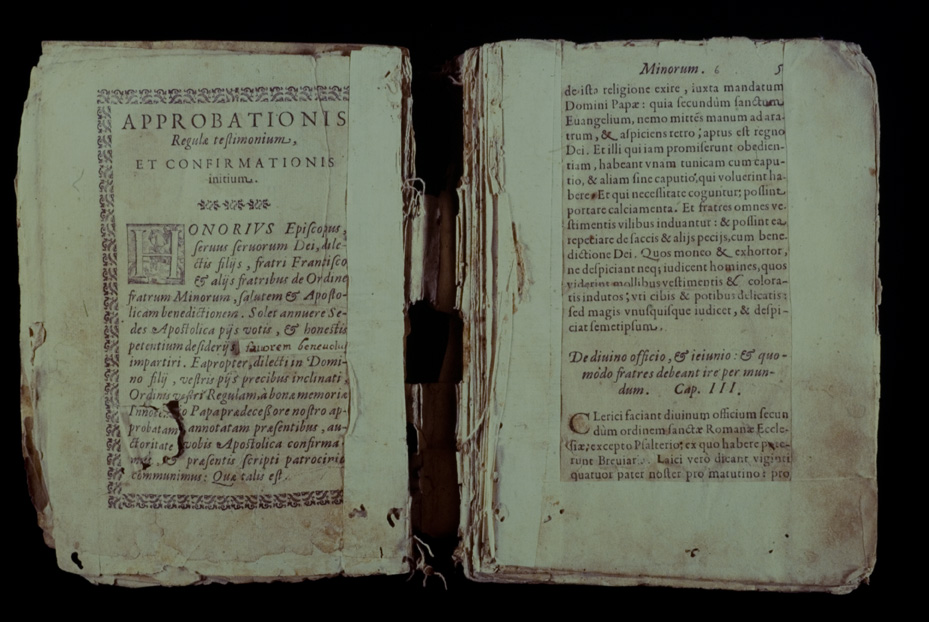 APPROBATIONIS
Regulæ testimonium,
ET CONFIRMATIONIS
initium.
HONORIVS Episcopus,
seruus seruorum Dei, dile-
ctis filijs, fratri Francisco,
& alijs fratribus de Ordine
fratrum Minorum, salutem & Aposto-
licam benedictionem. Solet annuere Se-
des Apostolica pijs votis, & honestis
petentium desiderijs fauorem beneuolum
impartiri. Eapropter, dilecti in Domi-
no filij, vestris pijs precibus inclinati,
Ordinis vestri Regulam à bonæ memoriæ
Papa prædecessore nostro ap-
probatam, annotatam præsentibus, au-
ctoritate vobis Apostolica confirma
& præsentis scripti patrocinio
communimus: Quæ talis est.
Minorum. 6 5
de ista religione exire, iuxta mandatum
Domini Papæ: quia secundùm sanctum
Euangelium, nemo mittẽs manum ad ara-
trum, & aspiciens retro, aptus est regno
Dei. Et illi qui iam promiserunt obedien-
tiam, habeant vnam tunicam cum capu-
tio, & aliam sine caputio, qui voluerint ha-
bere. Et qui necessitate coguntur: possint
portare calciamenta. Et fratres omnes ve-
stimentis vilibus induantur: & possint ea
repetiare de saccis & alijs pecijs, cum bene-
dictione Dei. Quos moneo & exhortor,
ne despiciant neq; iudicent homines, quos
viderint mollibus vestimentis & colora-
tis indutos; vti cibis & potibus delicatis:
sed magis vnusquisque iudicet, & despi-
ciat semetipsum.
De diuino officio, & ieiunio: & quo-
mòdo fratres debeant ire per mun-
dum. Cap. III.
CLerici faciant diuinum officium secun
dùm ordinem sanctæ Romanæ Eccle-
siæ, excepto Psalterio: ex quo habere pote-
runt Breuiar. Laici verò dicant viginti
quatuor pater noster pro matutino: pro